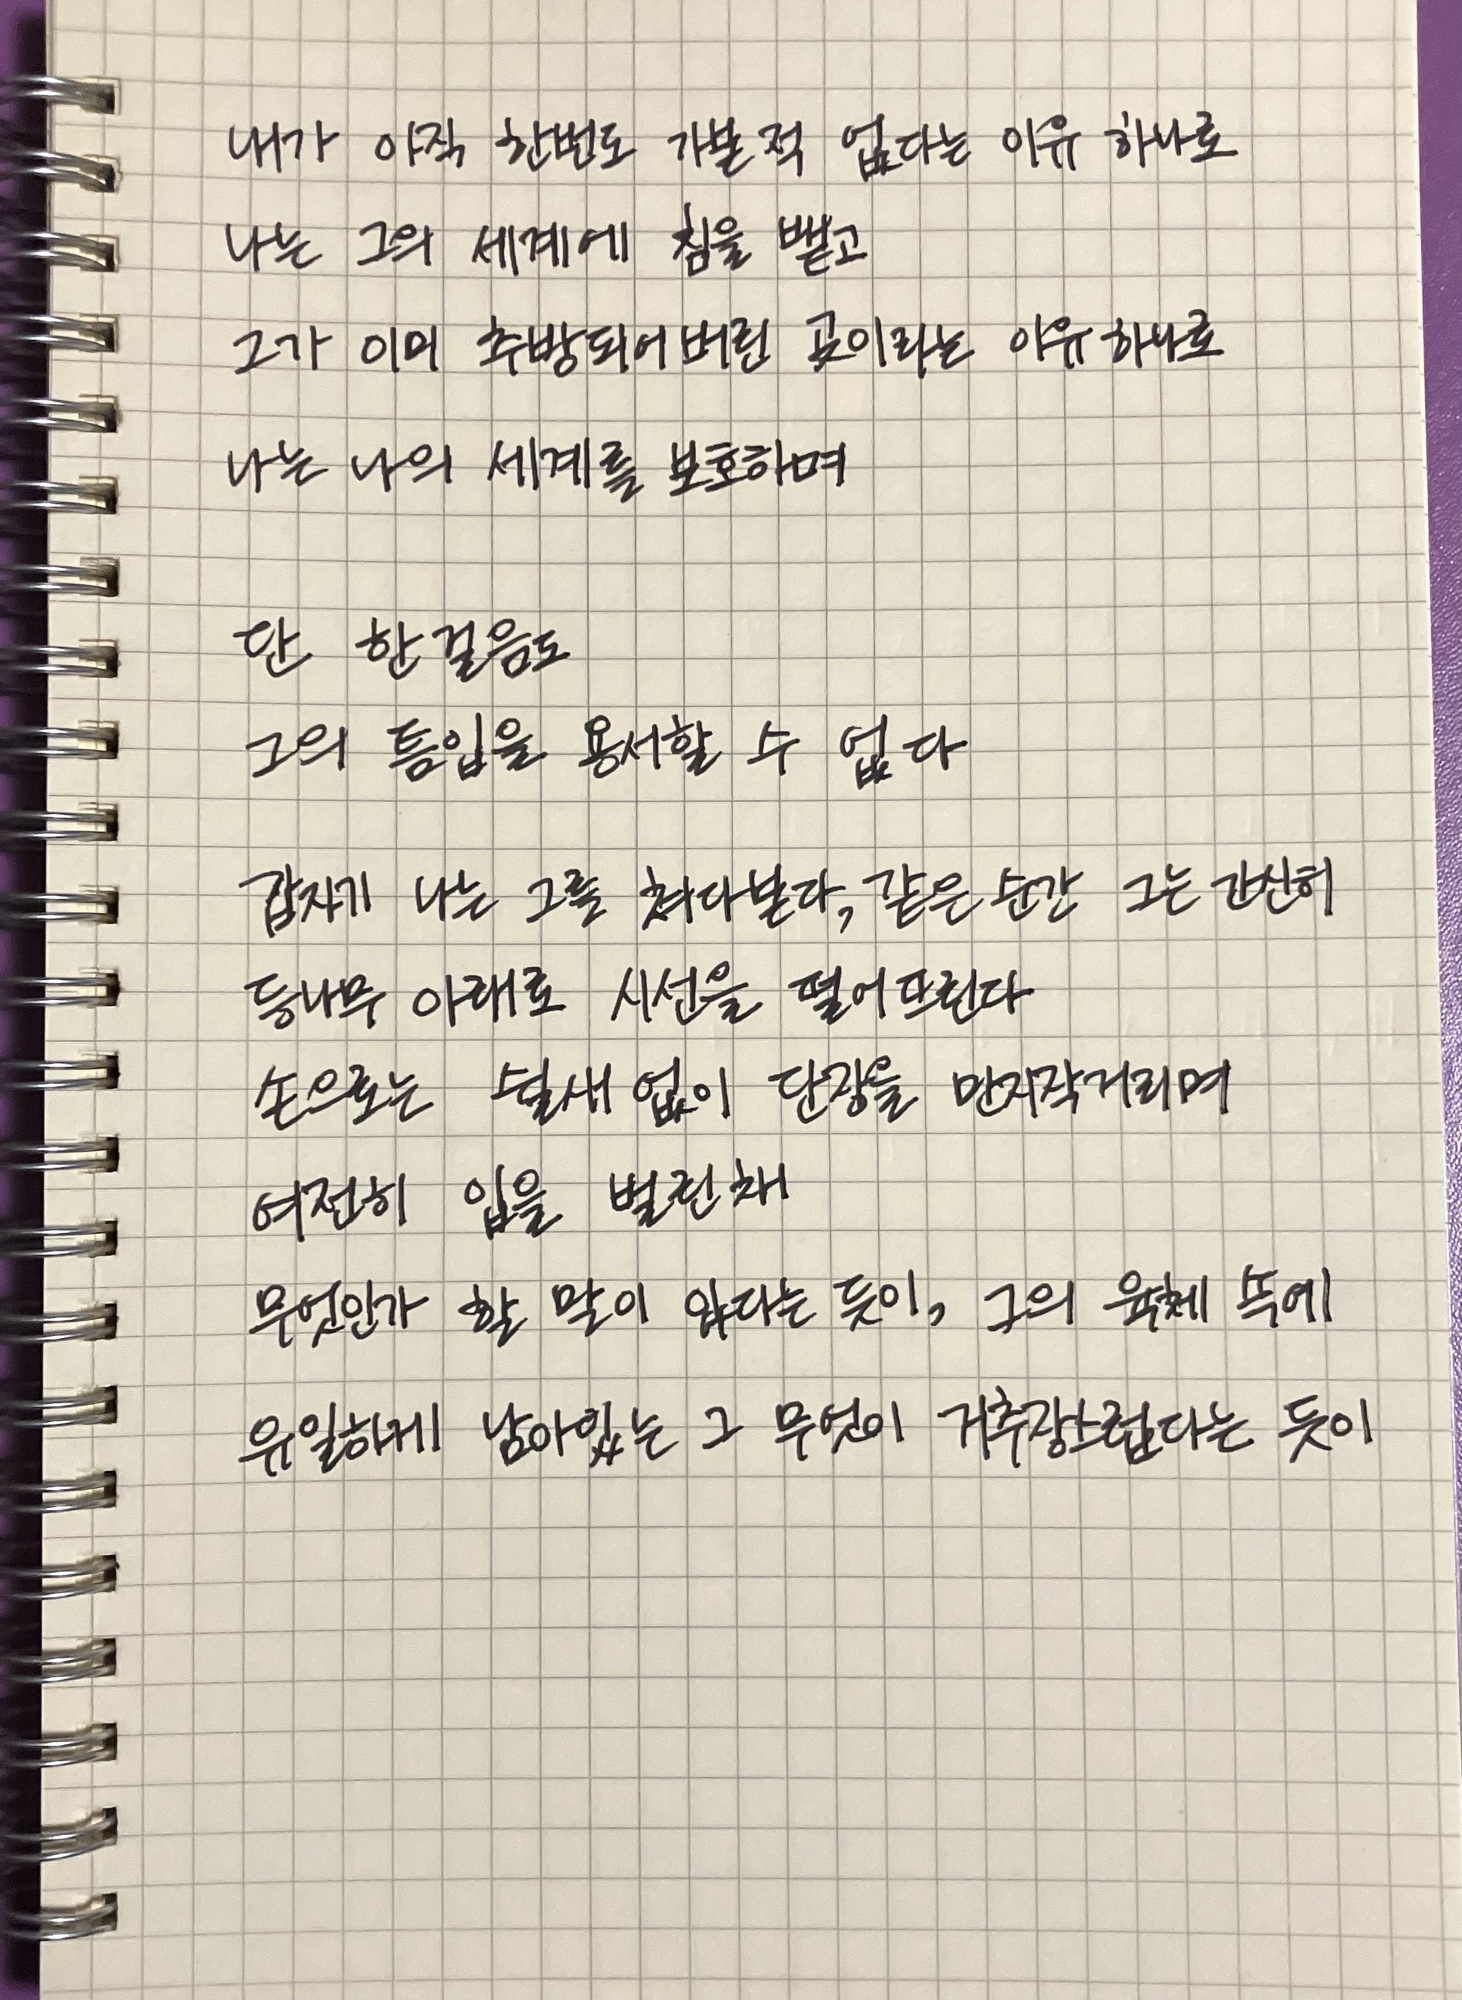 내가 아직 한번도 가본 적 없다는 이유 하나로
나는 그의 세계에 침을 뱉고
그가 이미 추방되어버린 곳이라는 이유 하나로
나는 나의 세계를 보호하며
단 한걸음도
그의 틈입을 용서할 수 없다
갑자기 나는 그를 쳐다본다, 같은 순간 그는 간신히
등나무 아래로 시선을 떨어뜨린다
손으로는 쉴새없이 단장을 만지작거리며
여전히 입을 벌린 채
무엇인가 할 말이 있다는 듯이, 그의 육체 속에
유일하게 남아있는 그 무엇이 거추장스럽다는 듯이